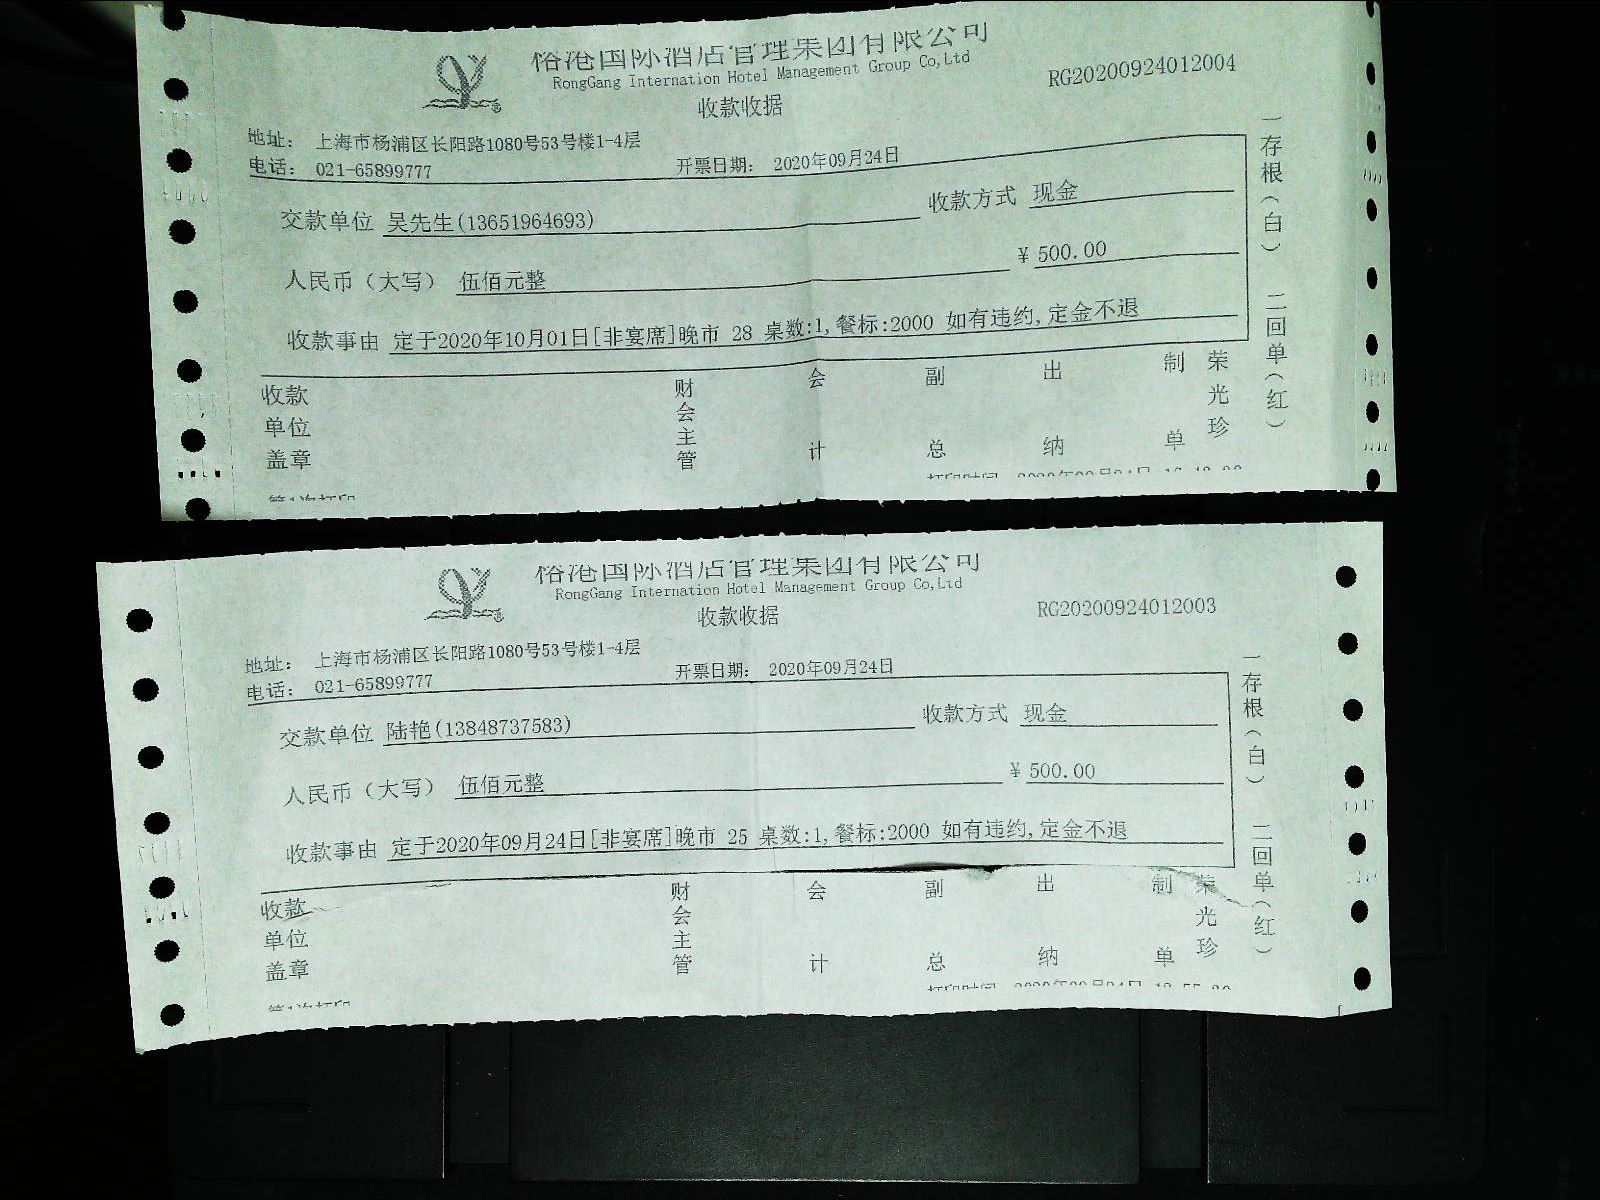 国际酒店管理集团有限公司
RongGang Internation Hotel Management Group Co,Ltd
收款收据
RG20200924012004
地址： 上海市杨浦区长阳路1080号53号楼1-4层
电话： 021-65899777
开票日期： 2020年09月24日
交款单位 吴先生(13651964693)
收款方式 现金
人民币（大写） 伍佰元整
¥ 500.00
收款事由 定于2020年10月01日[非宴席]晚市 28 桌数:1,餐标:2000 如有违约,定金不退
收款单位盖章
财会主管
会计
副总
出纳
制单
荣光珍
一存根（白） 二回单（红）
第1次打印
打印时间
国际酒店管理集团有限公司
RongGang Internation Hotel Management Group Co,Ltd
收款收据
RG20200924012003
地址： 上海市杨浦区长阳路1080号53号楼1-4层
电话： 021-65899777
开票日期： 2020年09月24日
交款单位 陆艳(13848737583)
收款方式 现金
人民币（大写） 伍佰元整
¥ 500.00
收款事由 定于2020年09月24日[非宴席]晚市 25 桌数:1,餐标:2000 如有违约,定金不退
收款单位盖章
财会主管
会计
副总
出纳
制单
荣光珍
一存根（白） 二回单（红）
第1次打印
打印时间